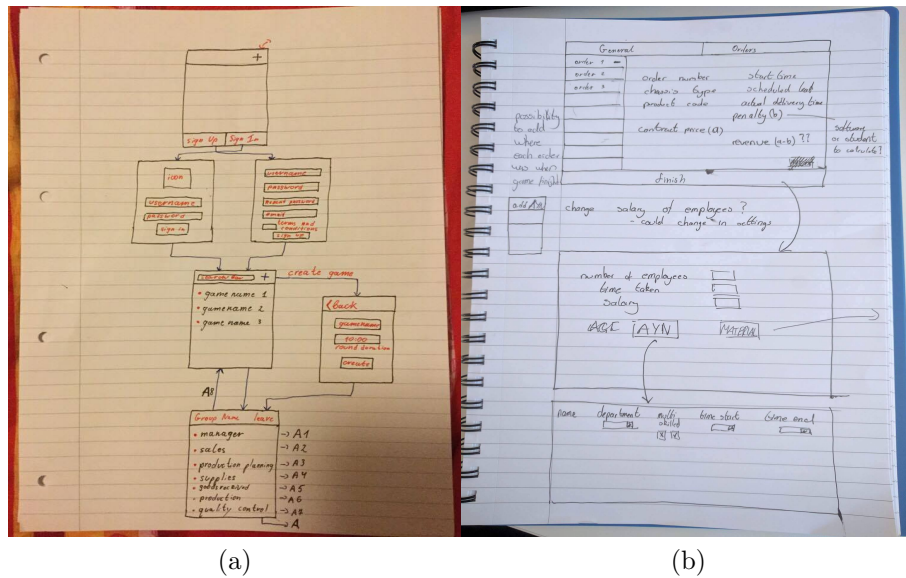 +
sign Up Sign In
icon
username
password
sign in
username
password
repeat password
email
terms and
conditions
sign up
+
create game
• game name 1
• gamename 2
• game name 3
back
gamename
10:00
round duration
create
A8
Group Name leave
• manager → A1
• sales → A2
• production planning → A3
• supplies → A4
• goods received → A5
• production → A6
• quality control
→ A
(a)
General Orders
order 1
order 2
order 3
order number start time
chassis type scheduled
product code actual delivery time
penalty (b)
contract price (a)
revenue (a-b) ??
software
or student
to calculate?
possibility
to add
where
each order
was when
game
finish
add
change salary of employees?
- could change in settings
number of employees
time taken
salary
AYN
MATERIAL
name department multi
skilled time start time end
(b)